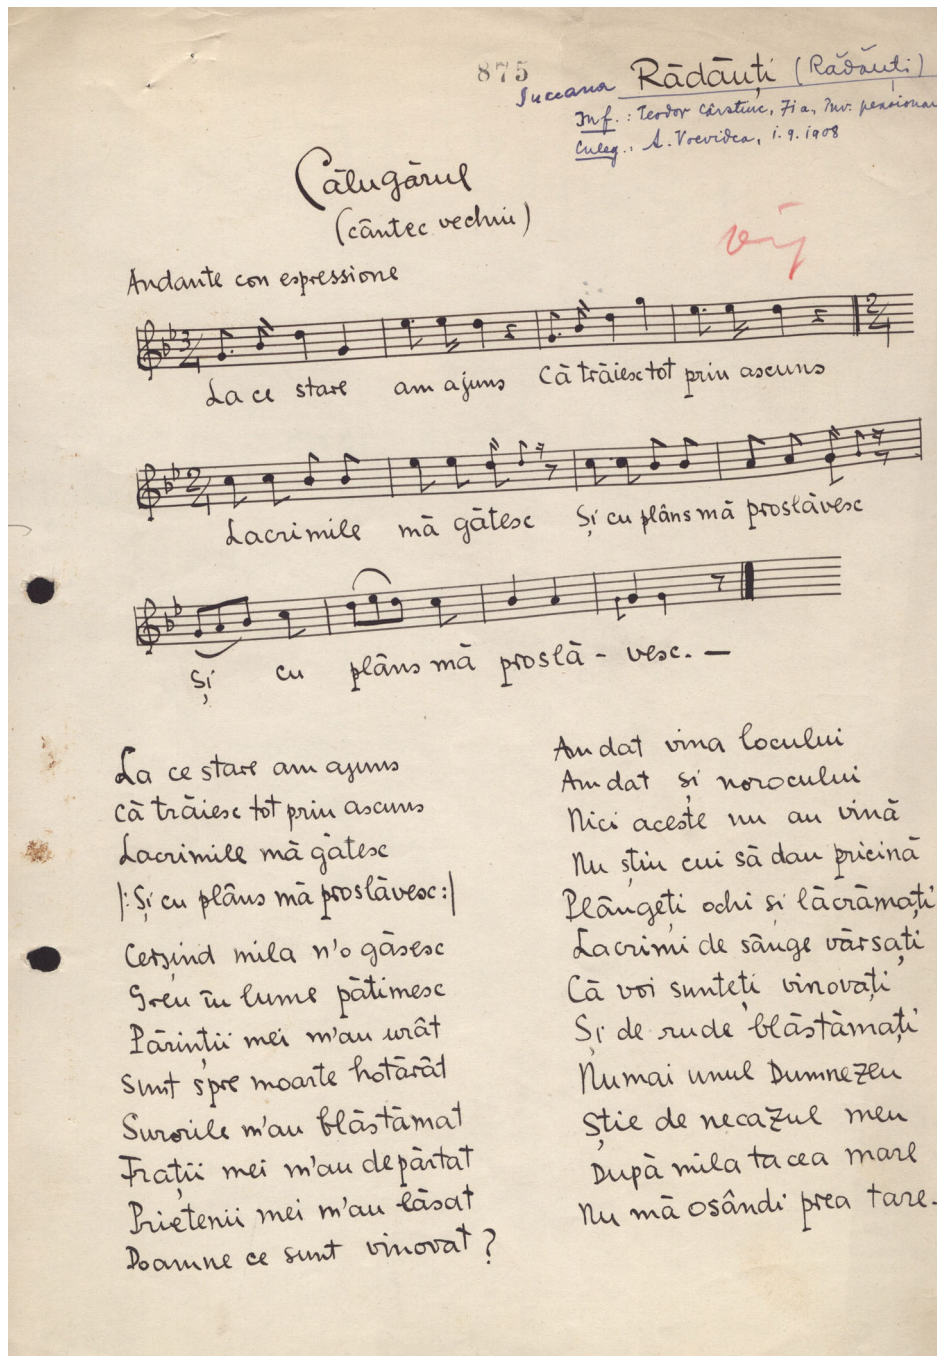 875
Suceava Rădăuți (Rădăuți)
Inf.: Teodor Cârstiuc, 71 a, înv. pensionar
Culeg.: A. Voevidca, 1.9.1908
Călugărul
(cântec vechiu)
Andante con espressione
3/4
2/4
La ce stare am ajuns Că trăiesc tot prin ascuns
2/4
Lacrimile mă gătesc Și cu plâns mă proslăvesc
Și cu plâns mă proslă - vesc. —
La ce stare am ajuns
Că trăiesc tot prin ascuns
Lacrimile mă gătesc
|: Și cu plâns mă proslăvesc :|
Cerșind mila n'o găsesc
Greu în lume pătimesc
Părinții mei m'au urât
Sunt spre moarte hotărât
Surorile m'au blăstămat
Frații mei m'au depărtat
Prietenii mei m'au lăsat
Doamne ce sunt vinovat?
Am dat vina locului
Am dat și norocului
Nici aceste nu au vină
Nu știu cui să dau pricină
Plângeți ochi și lăcrămați
Lacrimi de sânge vărsați
Că voi sunteți vinovați
Și de rude blăstămați
Numai unul Dumnezeu
Știe de necazul meu
După mila ta cea mare
Nu mă osândi prea tare.